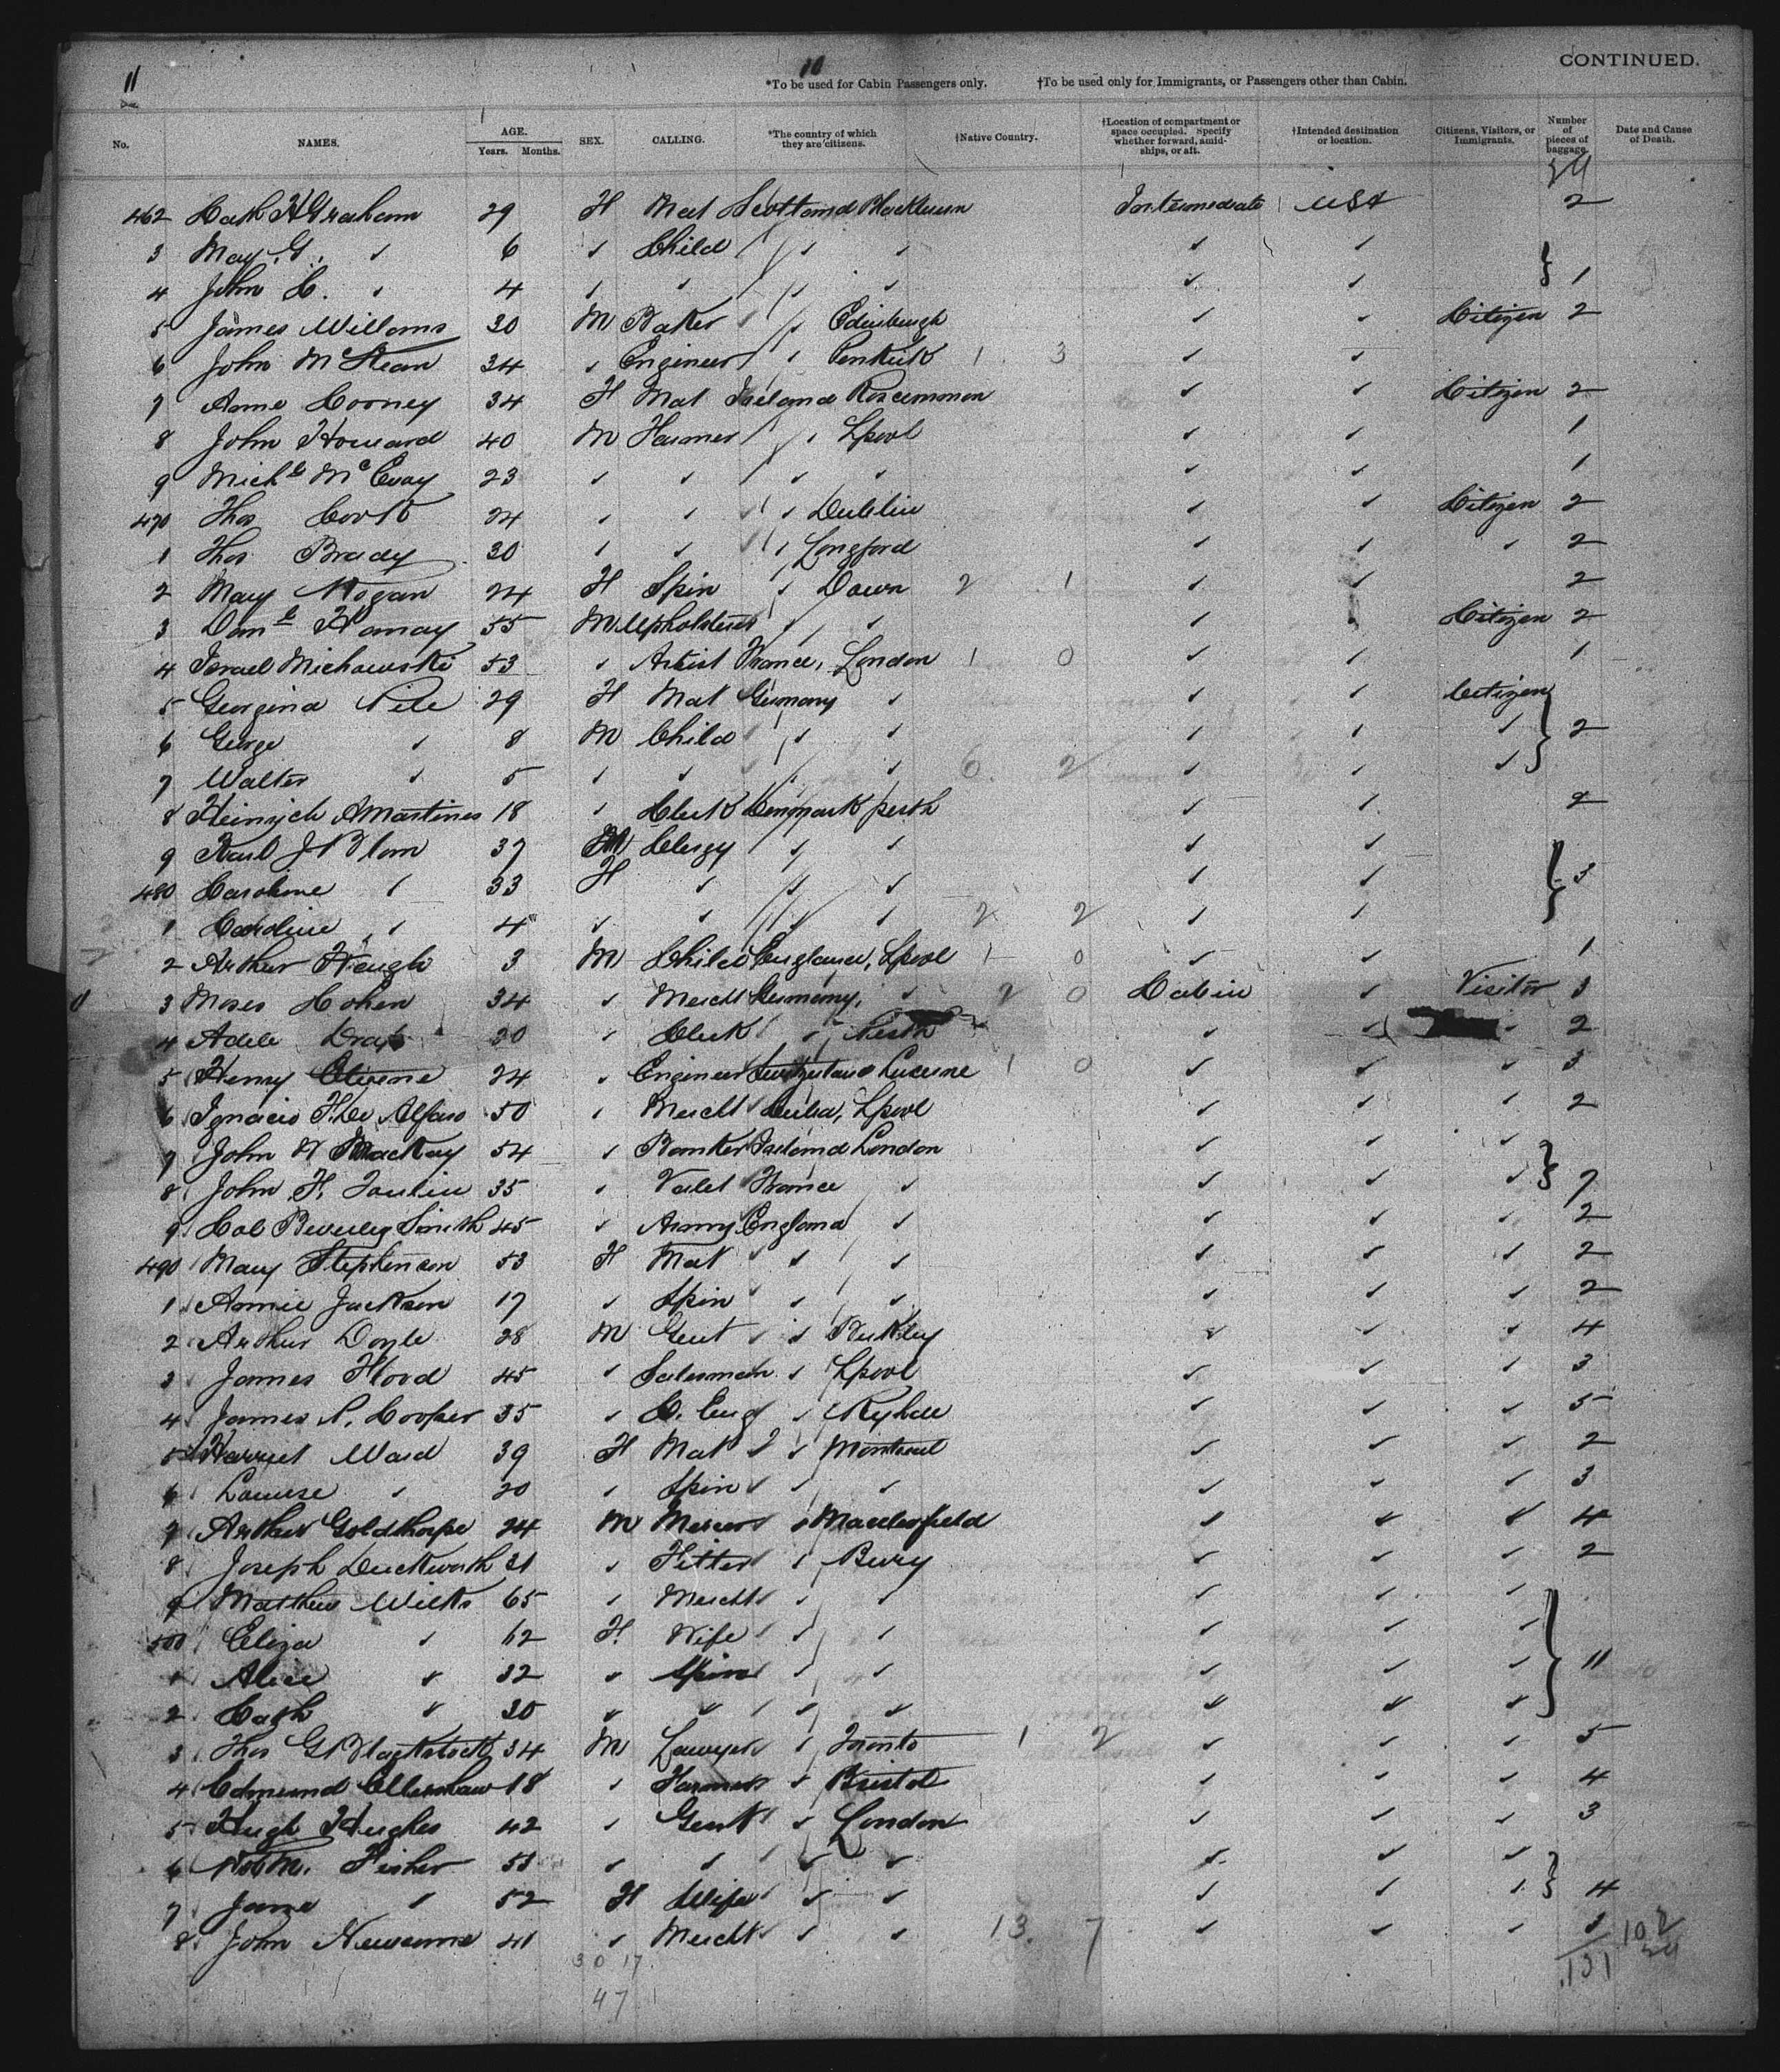 11
10
CONTINUED.
*To be used for Cabin Passengers only. †To be used only for Immigrants, or Passengers other than Cabin.
No. NAMES. AGE. Years. Months. SEX. CALLING. *The country of which they are citizens. †Native Country. †Location of compartment or space occupied. Specify whether forward, amidships, or aft. †Intended destination or location. Citizens, Visitors, or Immigrants. Number of pieces of baggage. Date and Cause of Death.
462 Cath H Graham 29 F Mat Scotland Blackburn Intermediate USA 2
3 May G. " 6 " Child " "  " "
4 John C. " 4 " " " " " " 1
5 James Willams 30 M Baker " Edinburgh " " Citizen 2
6 John McStean 34 " Engineer " Penkuik 1 3 " "
7 Anne Cooney 34 F Mat Ireland Roscommon " " Citizen 2
8 John Howard 40 M Farmer " Lpool " " 1
9 Michl McEvoy 23 " " " " " " 1
470 Thos Cork 24 " " " Dublin " " Citizen 2
1 Thos Brady 30 " " " Longford " " " 2
2 Mary Hogan 24 F Spin " Down 2 1 " " 2
3 Danl 55 M Upholsterer " " " " Citizen 2
4 Israel Michowski 53 " Artist France, London 1 0 " " 1
5 Georgina Pile 29 F Mat Germany " " " Citizen
6 George " 8 M Child " " " " " 2
7 Walter " 5 " " " " 6 2 " " "
8 Heinrich A Martines 18 " Clerk Denmark perth " " 2
9 Karl J Blom 37 M Clergy " " " "
480 Caroline " 33 F " " " " " 3
1 Caroline " 4 " " " " 2 2 " "
2 Arthur Waugh 3 M Child England, Lpool 1 0 " " 1
3 Moses Cohen 34 " Mercht Germany, " 2 0 Cabin " Visitor 3
4 Adele 30 " Clerk " " " " 2
5 Henry 24 " Engineer Switzerland Lucerne 1 0 " " " 3
6 Ignacio F. De Alfaro 50 " Mercht Cuba, Lpool " " " 2
7 John W Mackay 54 " Banker Ireland London " " "
8 John F. 35 " Valet France " " " " 7
9 Col Beverley Smith 45 " Army England " " " " 2
490 Mary Stephenson 53 F Mat " " " " " 2
1 Annie Jackson 17 " Spin " " " " " 2
2 Arthur Doyle 28 M Gent " " " " 4
3 James Flood 45 " Salesman " Lpool " " " 3
4 James P. Cooper 35 " C. Eng " " " " 5
5 Harriet Ward 39 F Mat " Montreal " " " 2
6 Louise " 20 " Spin " " " " " 3
7 Arthur Goldthorpe 24 M Mercer " Macclesfield " " " 4
8 Joseph Duckworth 31 " Fitter " Bury " " " 2
9 Matthew Wilks 65 " Mercht " " " " "
500 Eliza " 62 F. Wife " " " " "
1 Alice " 32 " Spin " " " " " 11
2 Cath " 30 " " " " " " "
3 Thos G Blackstock 34 M Lawyer " Toronto 1 2 " " " 5
4 Edmund Ellershaw 18 " Farmer " Bristol " " " 4
5 Hugh Hughes 42 " Gent " London " " " 3
6 Fisher 53 " " " " " " "
7 Jane " 52 F Wife " " " " " 4
8 John Newsome 41 " Mercht " " 13. 7 " " "
30 17
47